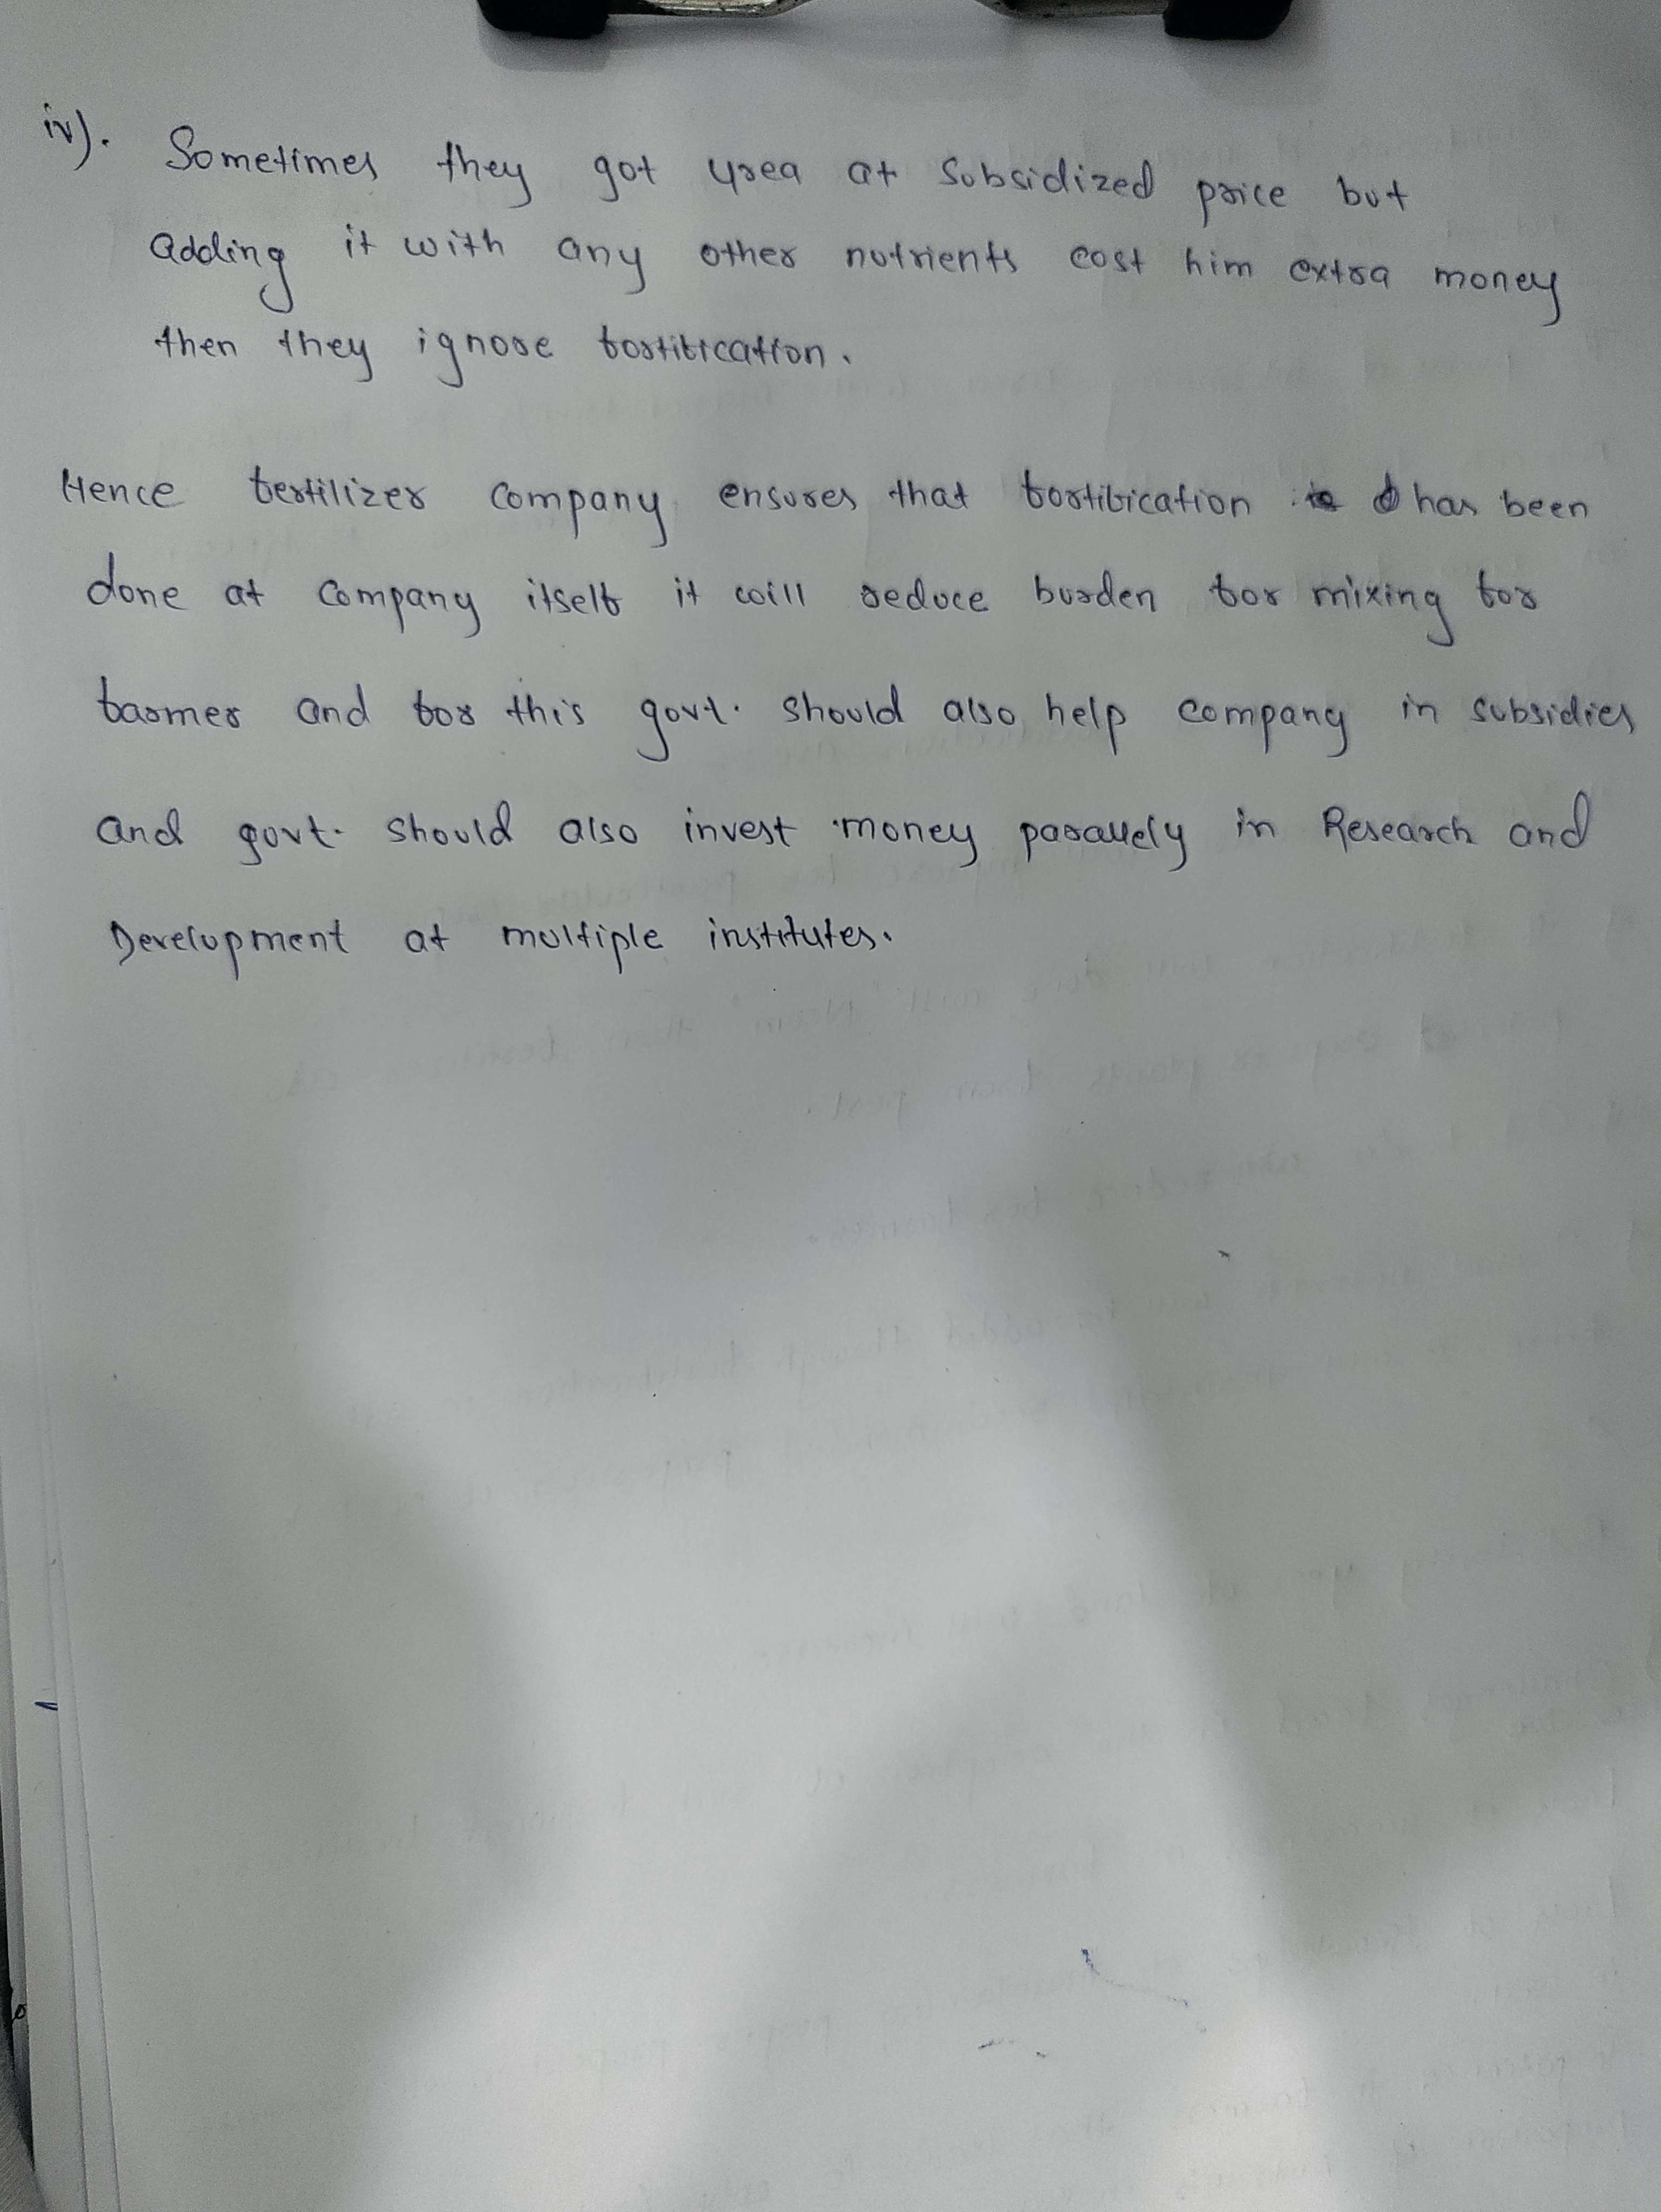 iv). Sometimes they got urea at subsidized price but
adding it with any other nutrients cost him extra money
then they ignore fortification.
Hence fertilizer company ensures that fortification has been
done at company itself it will reduce burden for mixing for
farmer and for this govt. should also help company in subsidies
and govt. should also invest money parallely in Research and
Development at multiple institutes.